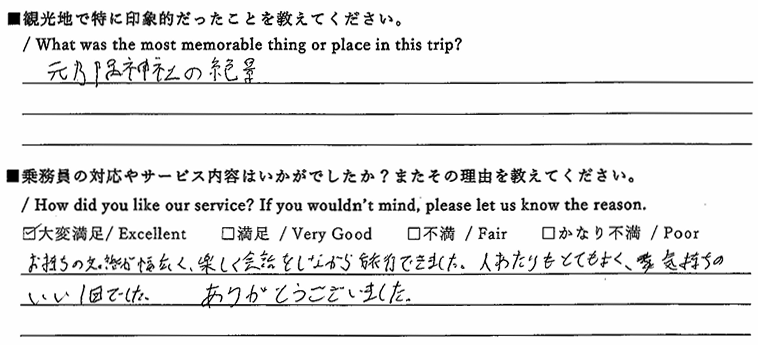 ■観光地で特に印象的だったことを教えてください。
/ What was the most memorable thing or place in this trip?
元乃隅神社の絶景
■乗務員の対応やサービス内容はいかがでしたか？またその理由を教えてください。
/ How did you like our service? If you wouldn't mind, please let us know the reason.
☑大変満足/ Excellent □満足 / Very Good □不満 / Fair □かなり不満 / Poor
お持ちの知識が幅広く、楽しく会話をしながら旅行できました。人あたりもとてもよく、気持ちの
いい1日でした。 ありがとうございました。